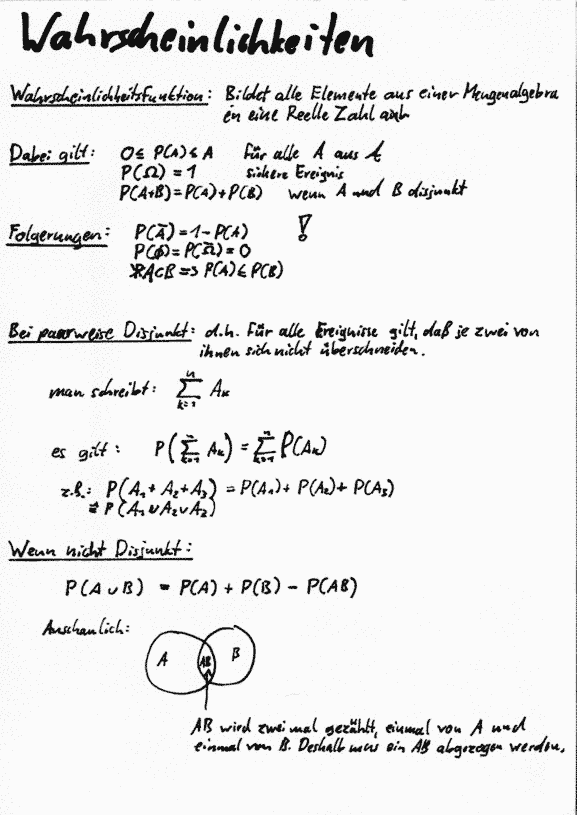 Wahrscheinlichkeiten
Wahrscheinlichkeitsfunktion: Bildet alle Elemente aus einer Mengenalgebra
en eine Reelle Zahl
Dabei gilt: 0≤ P(A) ≤ 1 für alle A aus 𝒜
P(Ω) = 1 sichere Ereignis
P(A+B) = P(A) + P(B) wenn A und B disjunkt
Folgerungen: P(A̅) = 1 - P(A) !
P(∅) = P(Ω̅) = 0
A⊂B => P(A) ≤ P(B)
Bei paarweise Disjunkt: d.h. Für alle Ereignisse gilt, daß je zwei von
ihnen sich nicht überschneiden.
man schreibt: ∑ₖ₌₁ⁿ Aₖ
es gilt: P(∑ₖ₌₁ⁿ Aₖ) = ∑ₖ₌₁ⁿ P(Aₖ)
z.B.: P(A₁ + A₂ + A₃) = P(A₁) + P(A₂) + P(A₃)
P(A₁ ∪ A₂ ∪ A₂)
Wenn nicht Disjunkt:
P(A ∪ B) = P(A) + P(B) - P(AB)
Anschaulich:
A AB B
AB wird zwei mal gezählt, einmal von A und
einmal von B. Deshalb mus ein AB abgezogen werden.